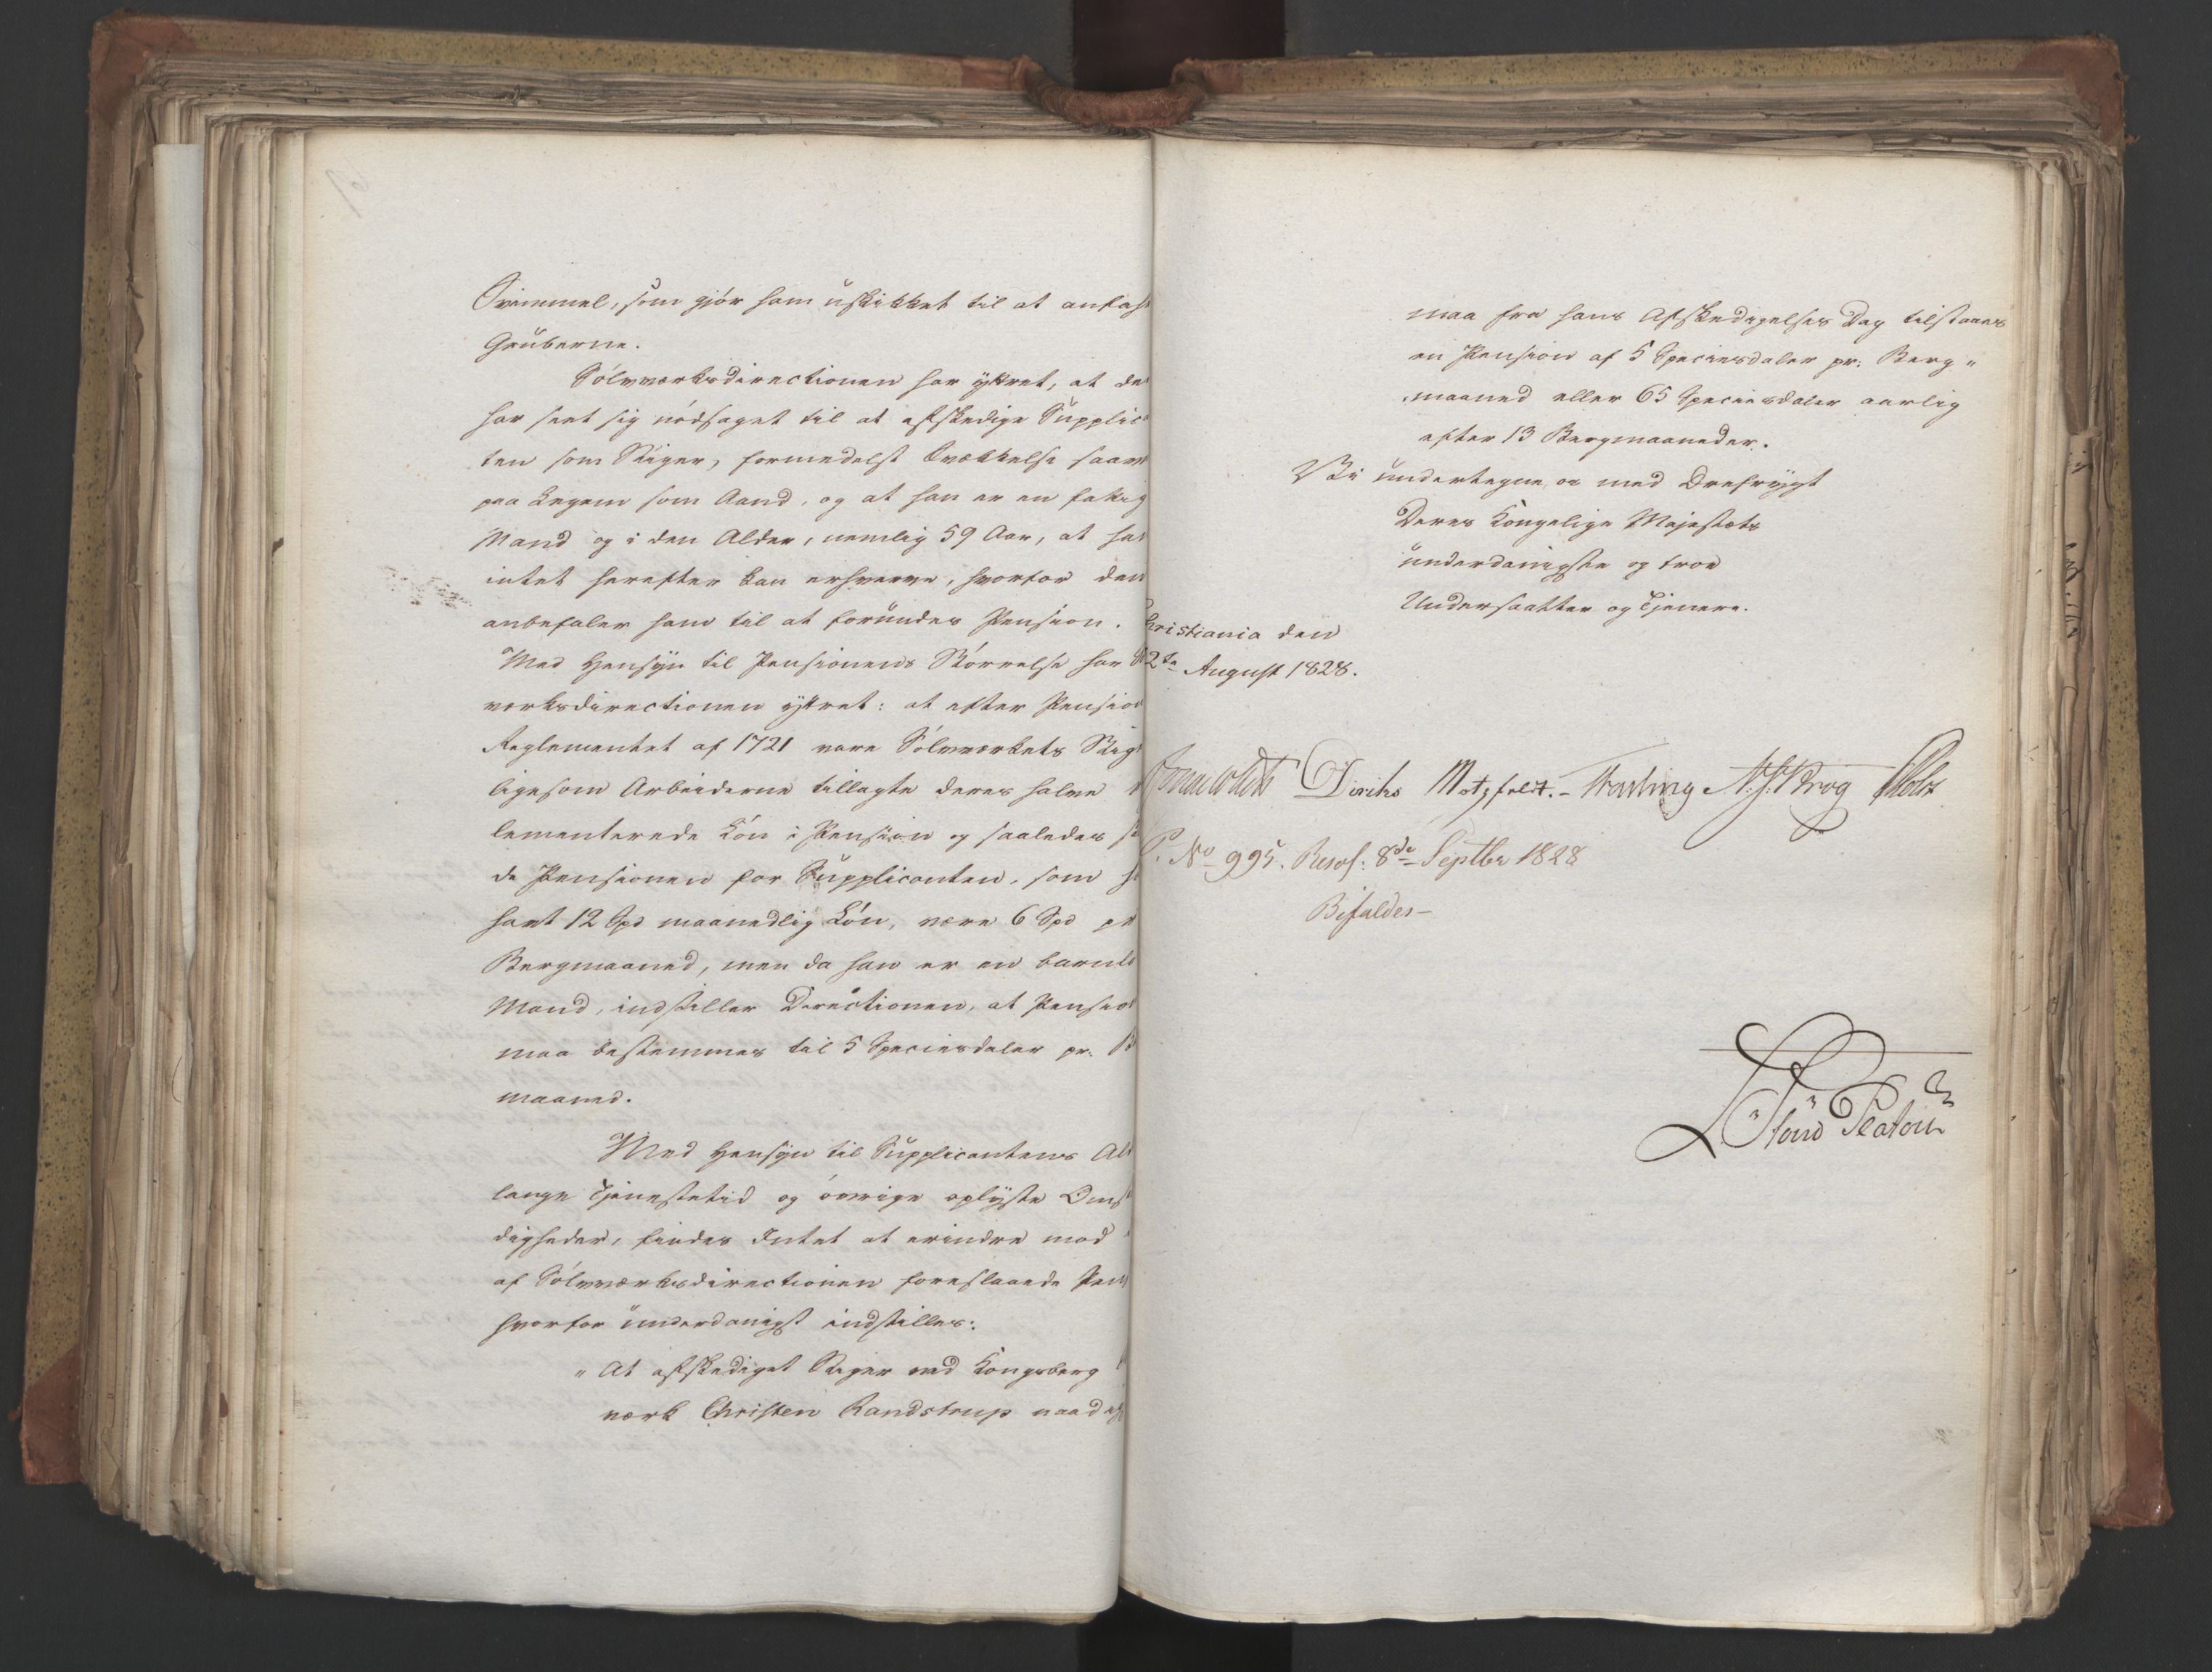 Svimmel, som gjör ham uskikket til at anfahr
Gruberne.
Sölvværksdirectionen har yttret, at den
har seet sig nödsaget til at afskedige Supplic
ten som Stiger, formedelst Svækkelse saav
paa Legem som Aand, og at han er en fattig
Mand og i den Alder, nemlig 59 Aar, at han
intet herefter kan erhverve, hvorfor den
anbefaler ham til at forundes Pension.
Med Hensyn til Pensionens Störrelse har
værksdirectionen yttret: at efter Pension
Reglementet af 1721 vare Sölvværkets Stig
ligesom Arbeiderne tillagte deres halve
lementerede Lön i Pension og saaledes
de Pensionen for Supplicanten, som
havt 12 Spd maanedlig Lön, være 6 Spd pr
Bergmaaned, men da han er en barnlö
Mand, indstiller Directionen, at Pension
maa bestemmes til 5 Speciesdaler pr. B
maaned.
Med Hensyn til Supplicantens Al
lange Tjenestetid og övrige oplyste Omst
digheder, findes Intet at erindre mod
af Sölvværksdirectionen foreslaaede Pen
hvorfor underdanigst indstilles:
" At afskediget Stiger ved Kongsberg
værk Christen Randstrup naadigst
maa fra hans Afskedigelses Dag tilstaaes
en Pension af 5 Speciesdaler pr: Berg"
maaned eller 65 Speciesdaler aarlig
efter 13 Bergmaaneder.
Vi undertegne os med Ærefrygt
Deres Kongelige Majestæts
underdanigste og troe
Undersaatter og Tjenere.
Christiania den
2de August 1828.
Diriks Motzfeldt. N. J. Krog Holst
No 995. Resol: 8de Septbr 1828
Bifaldes
Platou